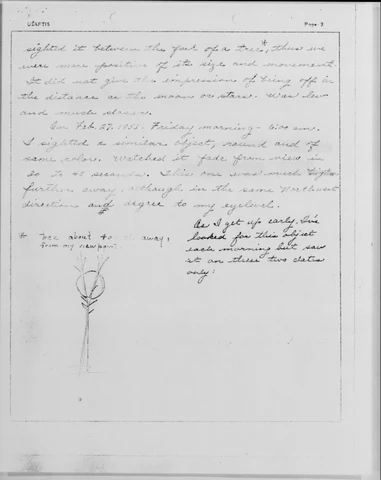 UZAFTIS Page 2
sighted it between the fork of a tree*, thus we
were more positive of its size and movement.
It did not give the impression of being off in
the distance as the moon or stars. Was low
and much slower.
On Feb. 27, 1953. Friday morning - 6:00 am.
I sighted a similar object, round and of
same color. Watched it fade from view in
to 45 seconds. This one was much higher
further away, although in the same Northwest
direction and degree to my eyelevel.
* Tree about away,
from my viewpoint.
As I get up early, I've
looked for this object
each morning but saw
it on these two dates
only.